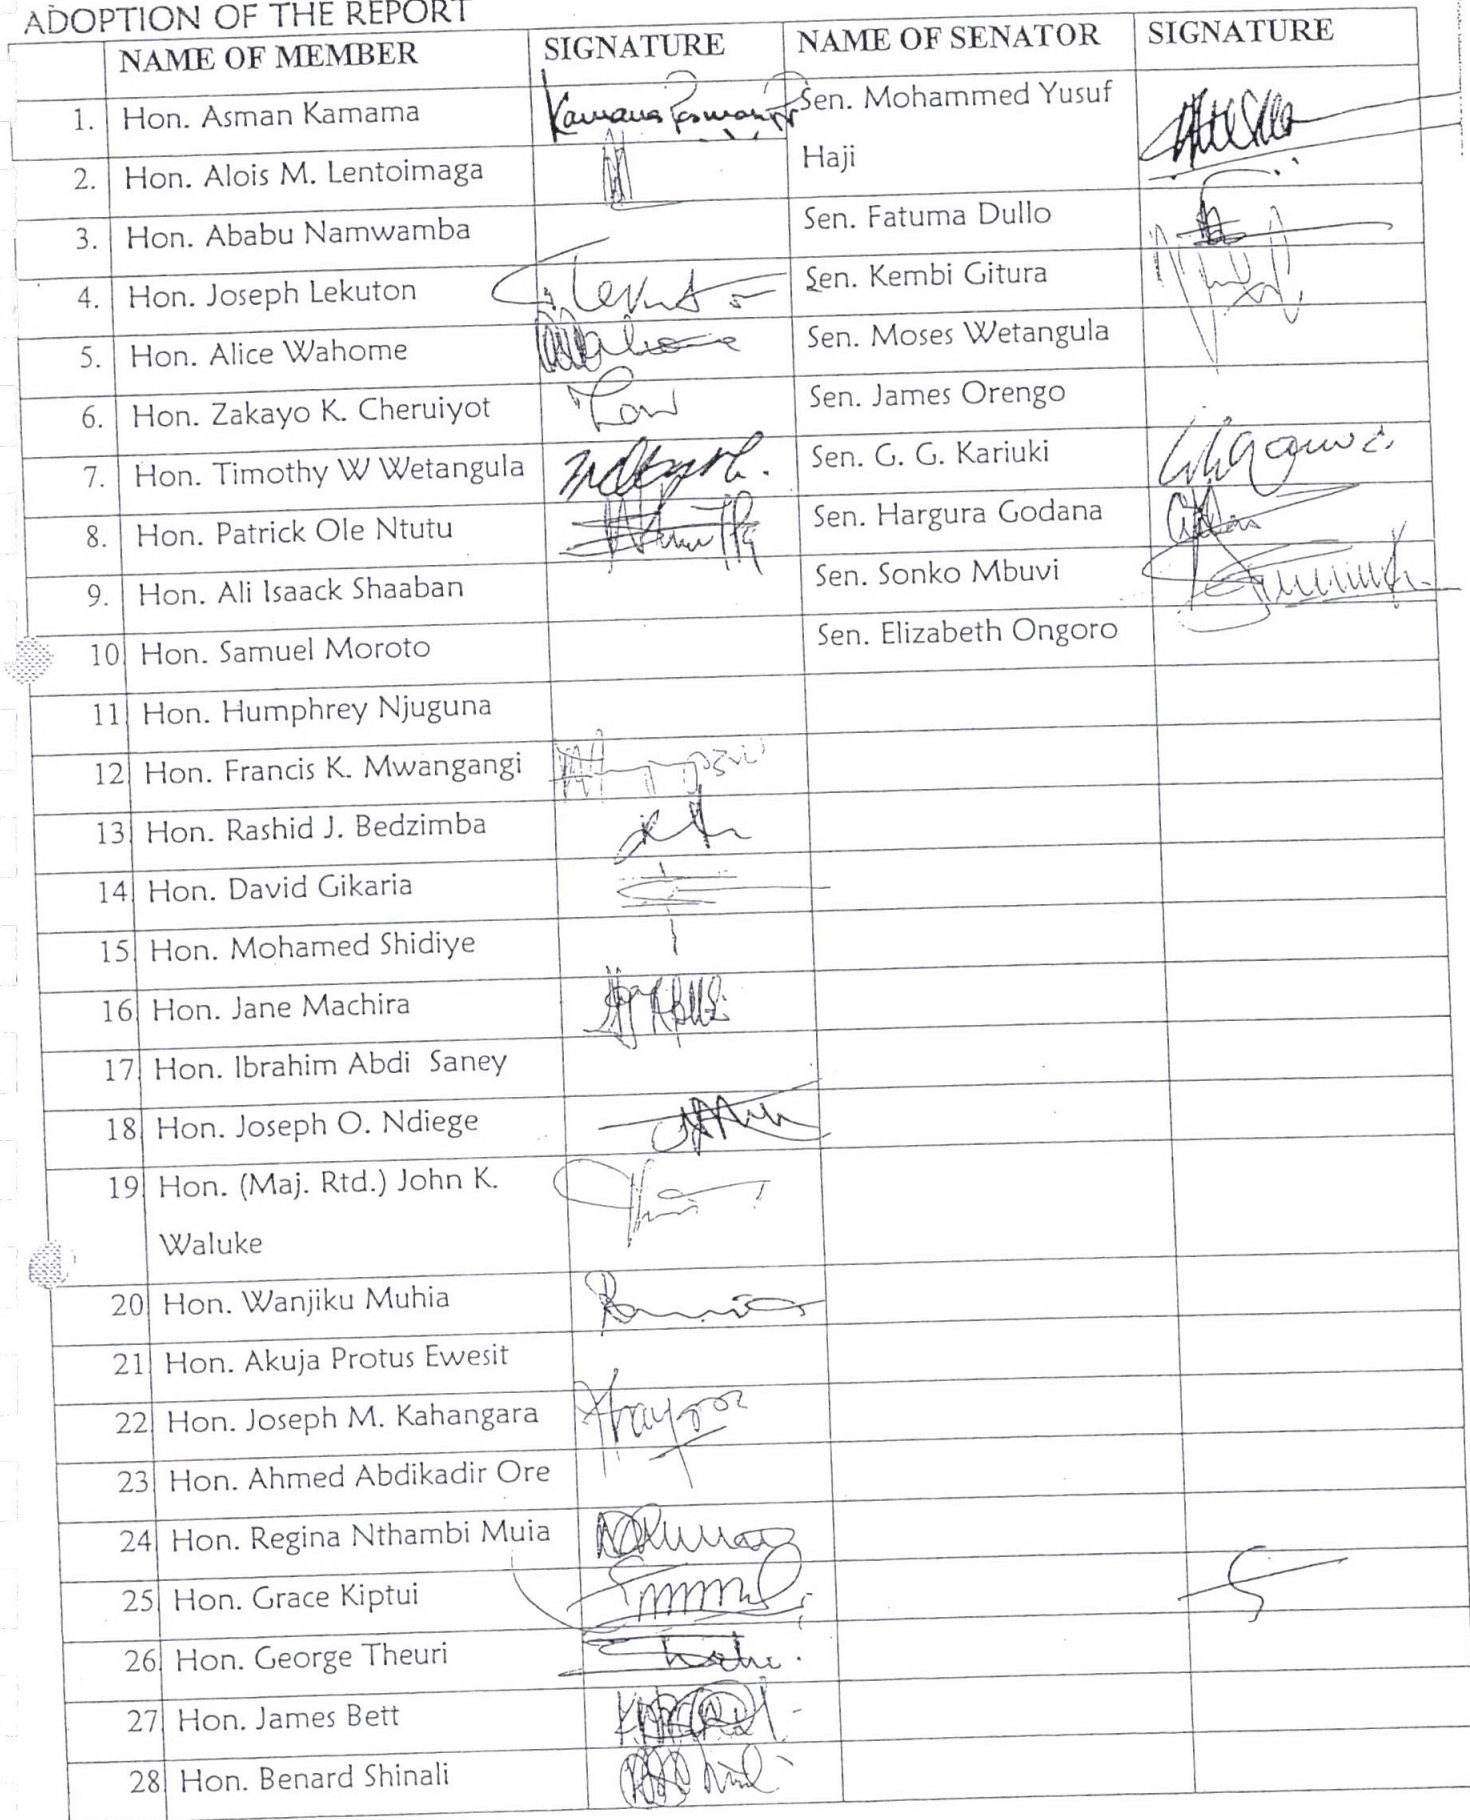 ADOPTION OF THE REPORT
NAME OF MEMBER SIGNATURE NAME OF SENATOR SIGNATURE
1. Hon. Asman Kamama Kamama Sen. Mohammed Yusuf
Haji
2. Hon. Alois M. Lentoimaga
3. Hon. Ababu Namwamba Sen. Fatuma Dullo
4. Hon. Joseph Lekuton Sen. Kembi Gitura
5. Hon. Alice Wahome Sen. Moses Wetangula
6. Hon. Zakayo K. Cheruiyot Sen. James Orengo
7. Hon. Timothy W Wetangula Sen. G. G. Kariuki
8. Hon. Patrick Ole Ntutu Sen. Hargura Godana
9. Hon. Ali Isaack Shaaban Sen. Sonko Mbuvi
10 Hon. Samuel Moroto Sen. Elizabeth Ongoro
11 Hon. Humphrey Njuguna
12 Hon. Francis K. Mwangangi
13 Hon. Rashid J. Bedzimba
14 Hon. David Gikaria
15 Hon. Mohamed Shidiye
16 Hon. Jane Machira
17 Hon. Ibrahim Abdi Saney
18 Hon. Joseph O. Ndiege
19 Hon. (Maj. Rtd.) John K.
Waluke
20 Hon. Wanjiku Muhia
21 Hon. Akuja Protus Ewesit
22 Hon. Joseph M. Kahangara
23 Hon. Ahmed Abdikadir Ore
24 Hon. Regina Nthambi Muia
25 Hon. Grace Kiptui
26 Hon. George Theuri
27 Hon. James Bett
28 Hon. Benard Shinali